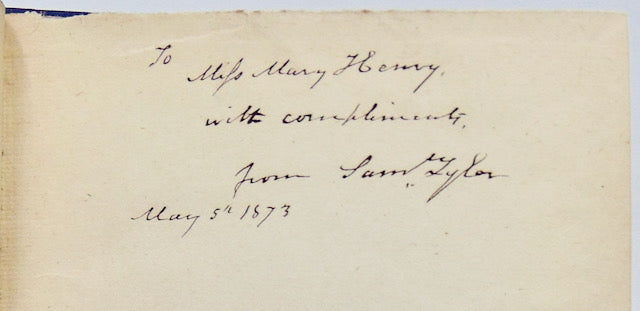 To
Miss Mary Henry,
with compliments,
from Saml. Tyler
May 5th 1873